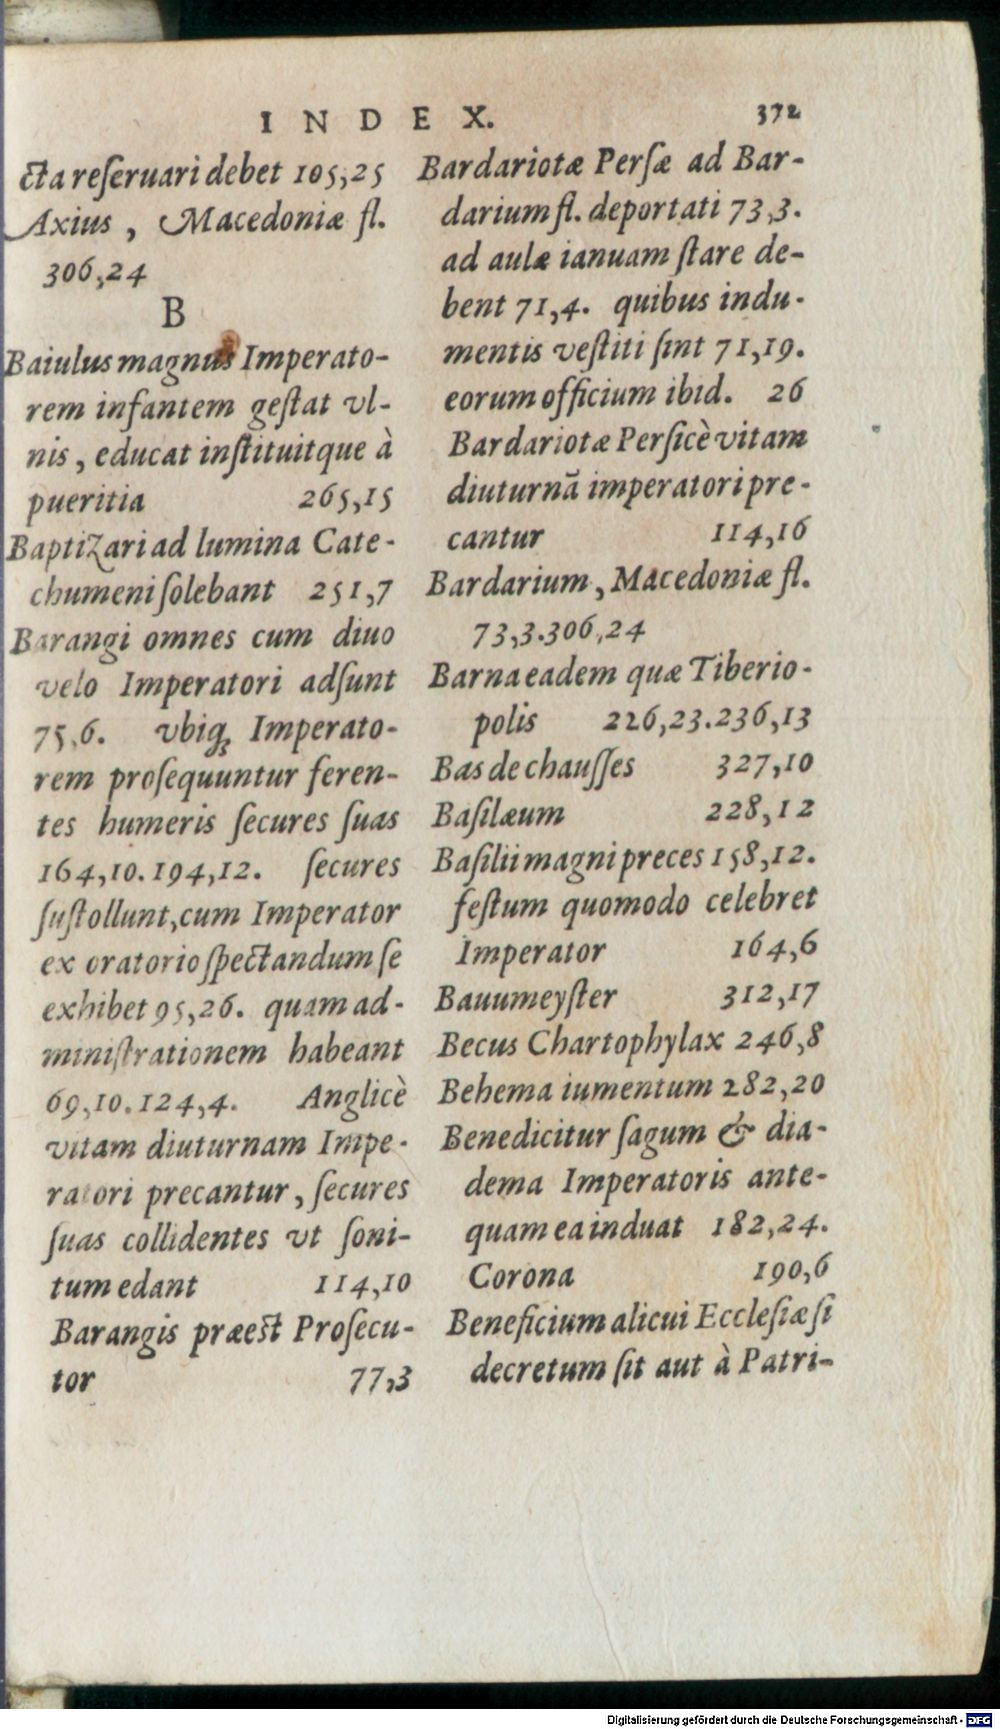 INDEX. 372
cta reſeruari debet 105,25
Axius, Macedoniæ fl.
306,24
B
Baiulus magnus Imperato-
rem infantem geſtat vl-
nis, educat inſtituitque à
pueritia 265,15
Baptizari ad lumina Cate-
chumeni ſolebant 251,7
Barangi omnes cum diuo
velo Imperatori adſunt
75,6. vbiq; Imperato-
rem proſequuntur feren-
tes humeris ſecures ſuas
164,10.194,12. ſecures
ſuſtollunt, cum Imperator
ex oratorio ſpectandum ſe
exhibet 95,26. quam ad-
miniſtrationem habeant
69,10.124,4. Anglicè
vitam diuturnam Impe-
ratori precantur, ſecures
ſuas collidentes vt ſoni-
tum edant 114,10
Barangis præest Proſecu-
tor 77,3
Bardariotæ Perſæ ad Bar-
darium fl. deportati 73,3.
ad aulæ ianuam ſtare de-
bent 71,4. quibus indu-
mentis veſtiti ſint 71,19.
eorum officium ibid. 26
Bardariotæ Perſicè vitam
diuturnã imperatori pre-
cantur 114,16
Bardarium, Macedoniæ fl.
73,3.306,24
Barna eadem quæ Tiberio-
polis 226,23.236,13
Bas de chauſſes 327,10
Baſilæum 228,12
Baſilii magni preces 158,12.
feſtum quomodo celebret
Imperator 164,6
Bauumeyſter 312,17
Becus Chartophylax 246,8
Behema iumentum 282,20
Benedicitur ſagum & dia-
dema Imperatoris ante-
quam ea induat 182,24.
Corona 190,6
Beneficium alicui Eccleſiæ ſi
decretum ſit aut à Patri-
Digitalisierung gefördert durch die Deutsche Forschungsgemeinschaft - DFG